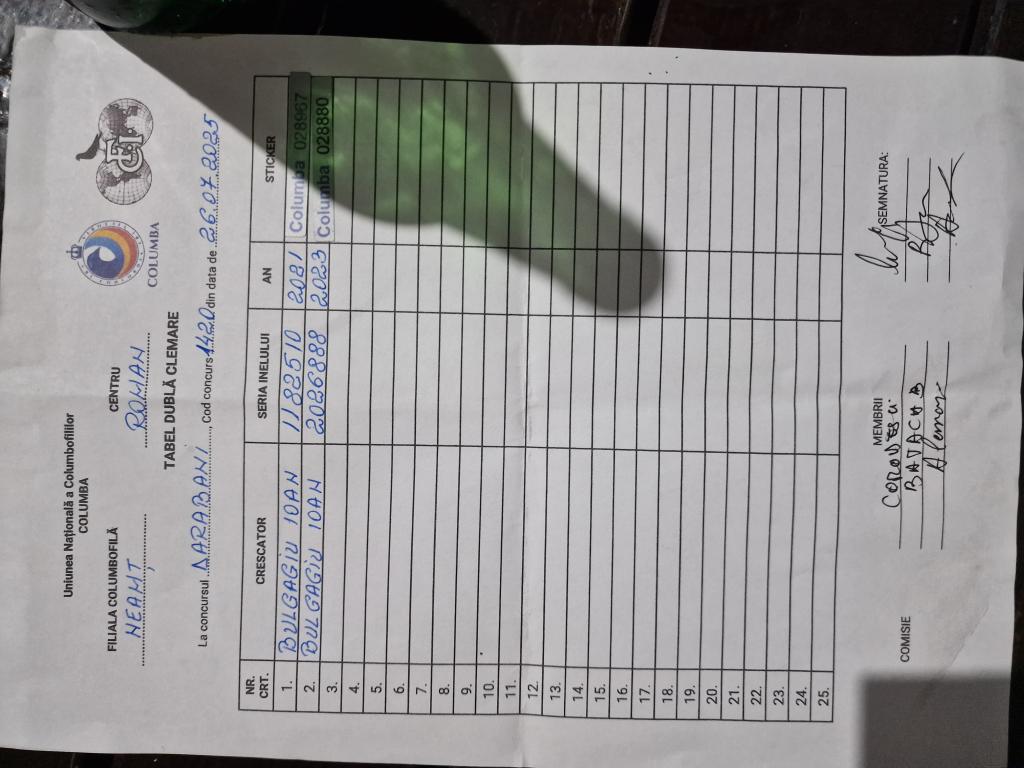 Uniunea Națională a Columbofililor
COLUMBA
COLUMBA
FILIALA COLUMBOFILĂ
CENTRU
NEAMȚ
ROMAN
TABEL DUBLĂ CLEMARE
La concursul DARABANI, Cod concurs 1420 din data de 26.07.2025
NR. CRT. CRESCATOR SERIA INELULUI AN STICKER
1. BULGAGIU IOAN 1182510 2021 Columba 028967
2. BULGAGIU IOAN 2026888 2023 Columba 028880
3.
4.
5.
6.
7.
8.
9.
10.
11.
12.
13.
14.
15.
16.
17.
18.
19.
20.
21.
22.
23.
24.
25.
COMISIE
MEMBRII
SEMNATURA: